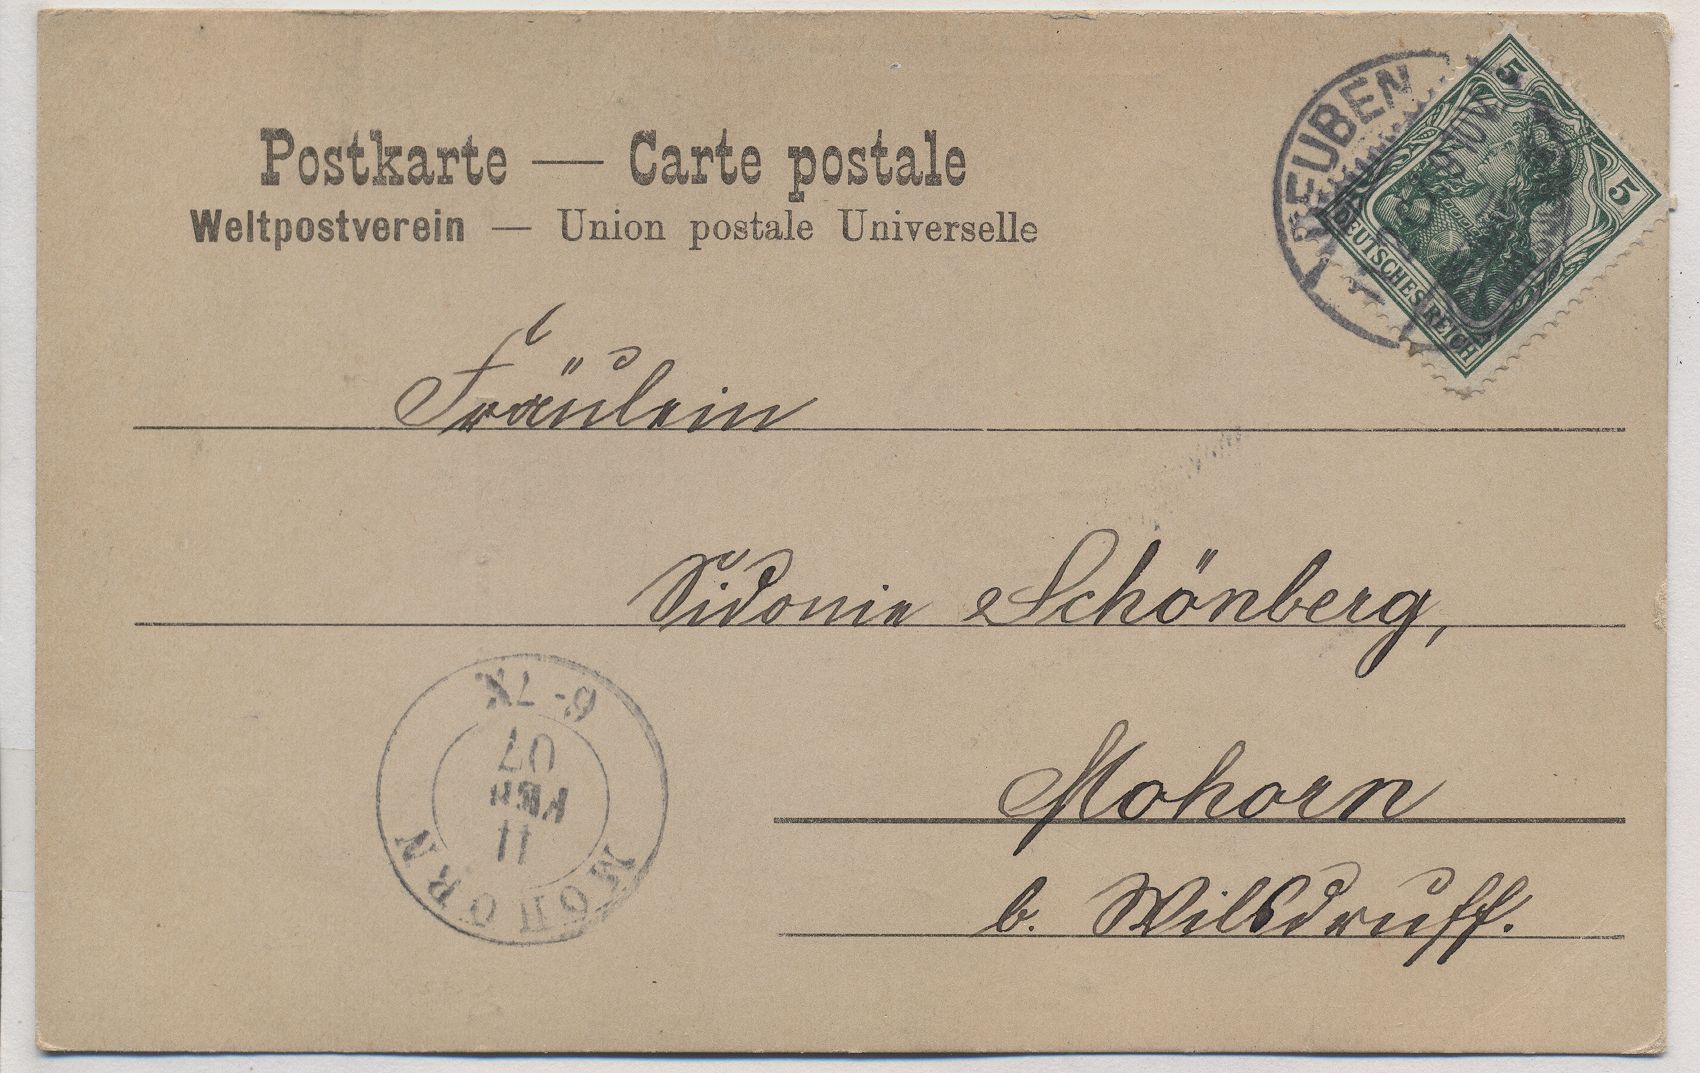 Postkarte — Carte postale
Weltpostverein — Union postale Universelle
5 5
DEUTSCHES REICH
REUBEN
Fräulein
Sidonie Schönberg,
Mohorn
b. Wilsdruff.
MOHORN
11
FEB
07
6-7